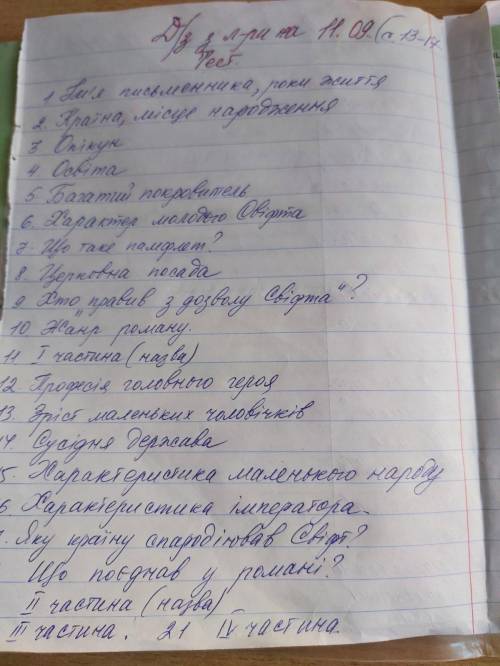 Д/з з л-ри на 11.09. (с. 13-17
Тест
1 Ім'я письменника, роки життя
2. Країна, місце народження
3 Опікун
4 Освіта
5 Багатий покровитель
6. Характер молодого Свіфта
7. Що таке памфлет?
8 Церковна посада
9 Хто "правив з дозволу Свіфта"?
10 Жанр роману.
11 I частина (назва)
12 Професія головного героя
13. Зріст маленьких чоловічків
14. Сусідня держава
5. Характеристика маленького народу
6 Характеристика імператора.
Яку країну спародіював Свіфт?
Що поєднав у романі?
II частина (назва)
III частина. 21 IV частина.